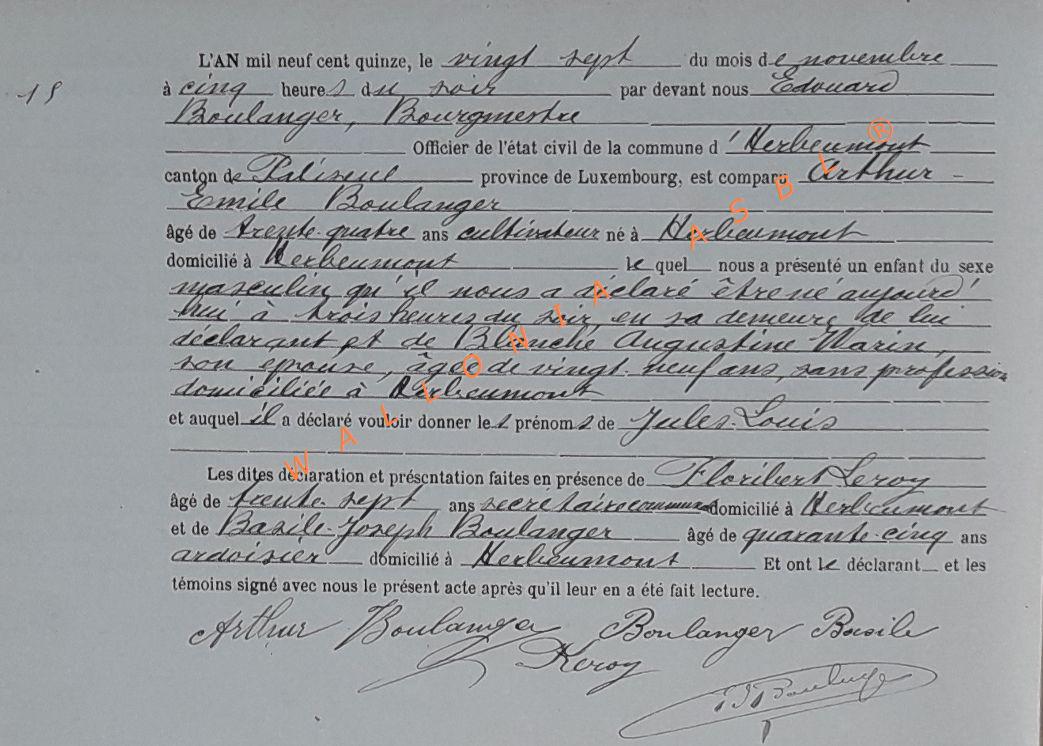 L'AN mil neuf cent quinze, le vingt sept du mois de novembre
15
à cinq heures du soir par devant nous Edouard
Boulanger, Bourgmestre
Officier de l'état civil de la commune d'Herbeumont
canton de Paliseul province de Luxembourg, est comparu Arthur -
Emile Boulanger
âgé de trente-quatre ans cultivateur né à Herbeumont
domicilié à Herbeumont le quel nous a présenté un enfant du sexe
masculin qu'il nous a déclaré être né aujourd'
hui à trois heures du soir en sa demeure de lui
déclarant et de Blanche Augustine Marin,
son épouse, âgée de vingt-neuf ans, sans profession
domiciliée à Herbeumont
et auquel il a déclaré vouloir donner les prénoms de Jules-Louis
Les dites déclaration et présentation faites en présence de Floribert Leroy
âgé de trente-sept ans secrétaire communal domicilié à Herbeumont
et de Basile-Joseph Boulanger âgé de quarante-cinq ans
ardoisier domicilié à Herbeumont Et ont le déclarant et les
témoins signé avec nous le présent acte après qu'il leur en a été fait lecture.
Arthur Boulanger Boulanger Basile
Leroy
Boulanger
WALLONIA ASBL®